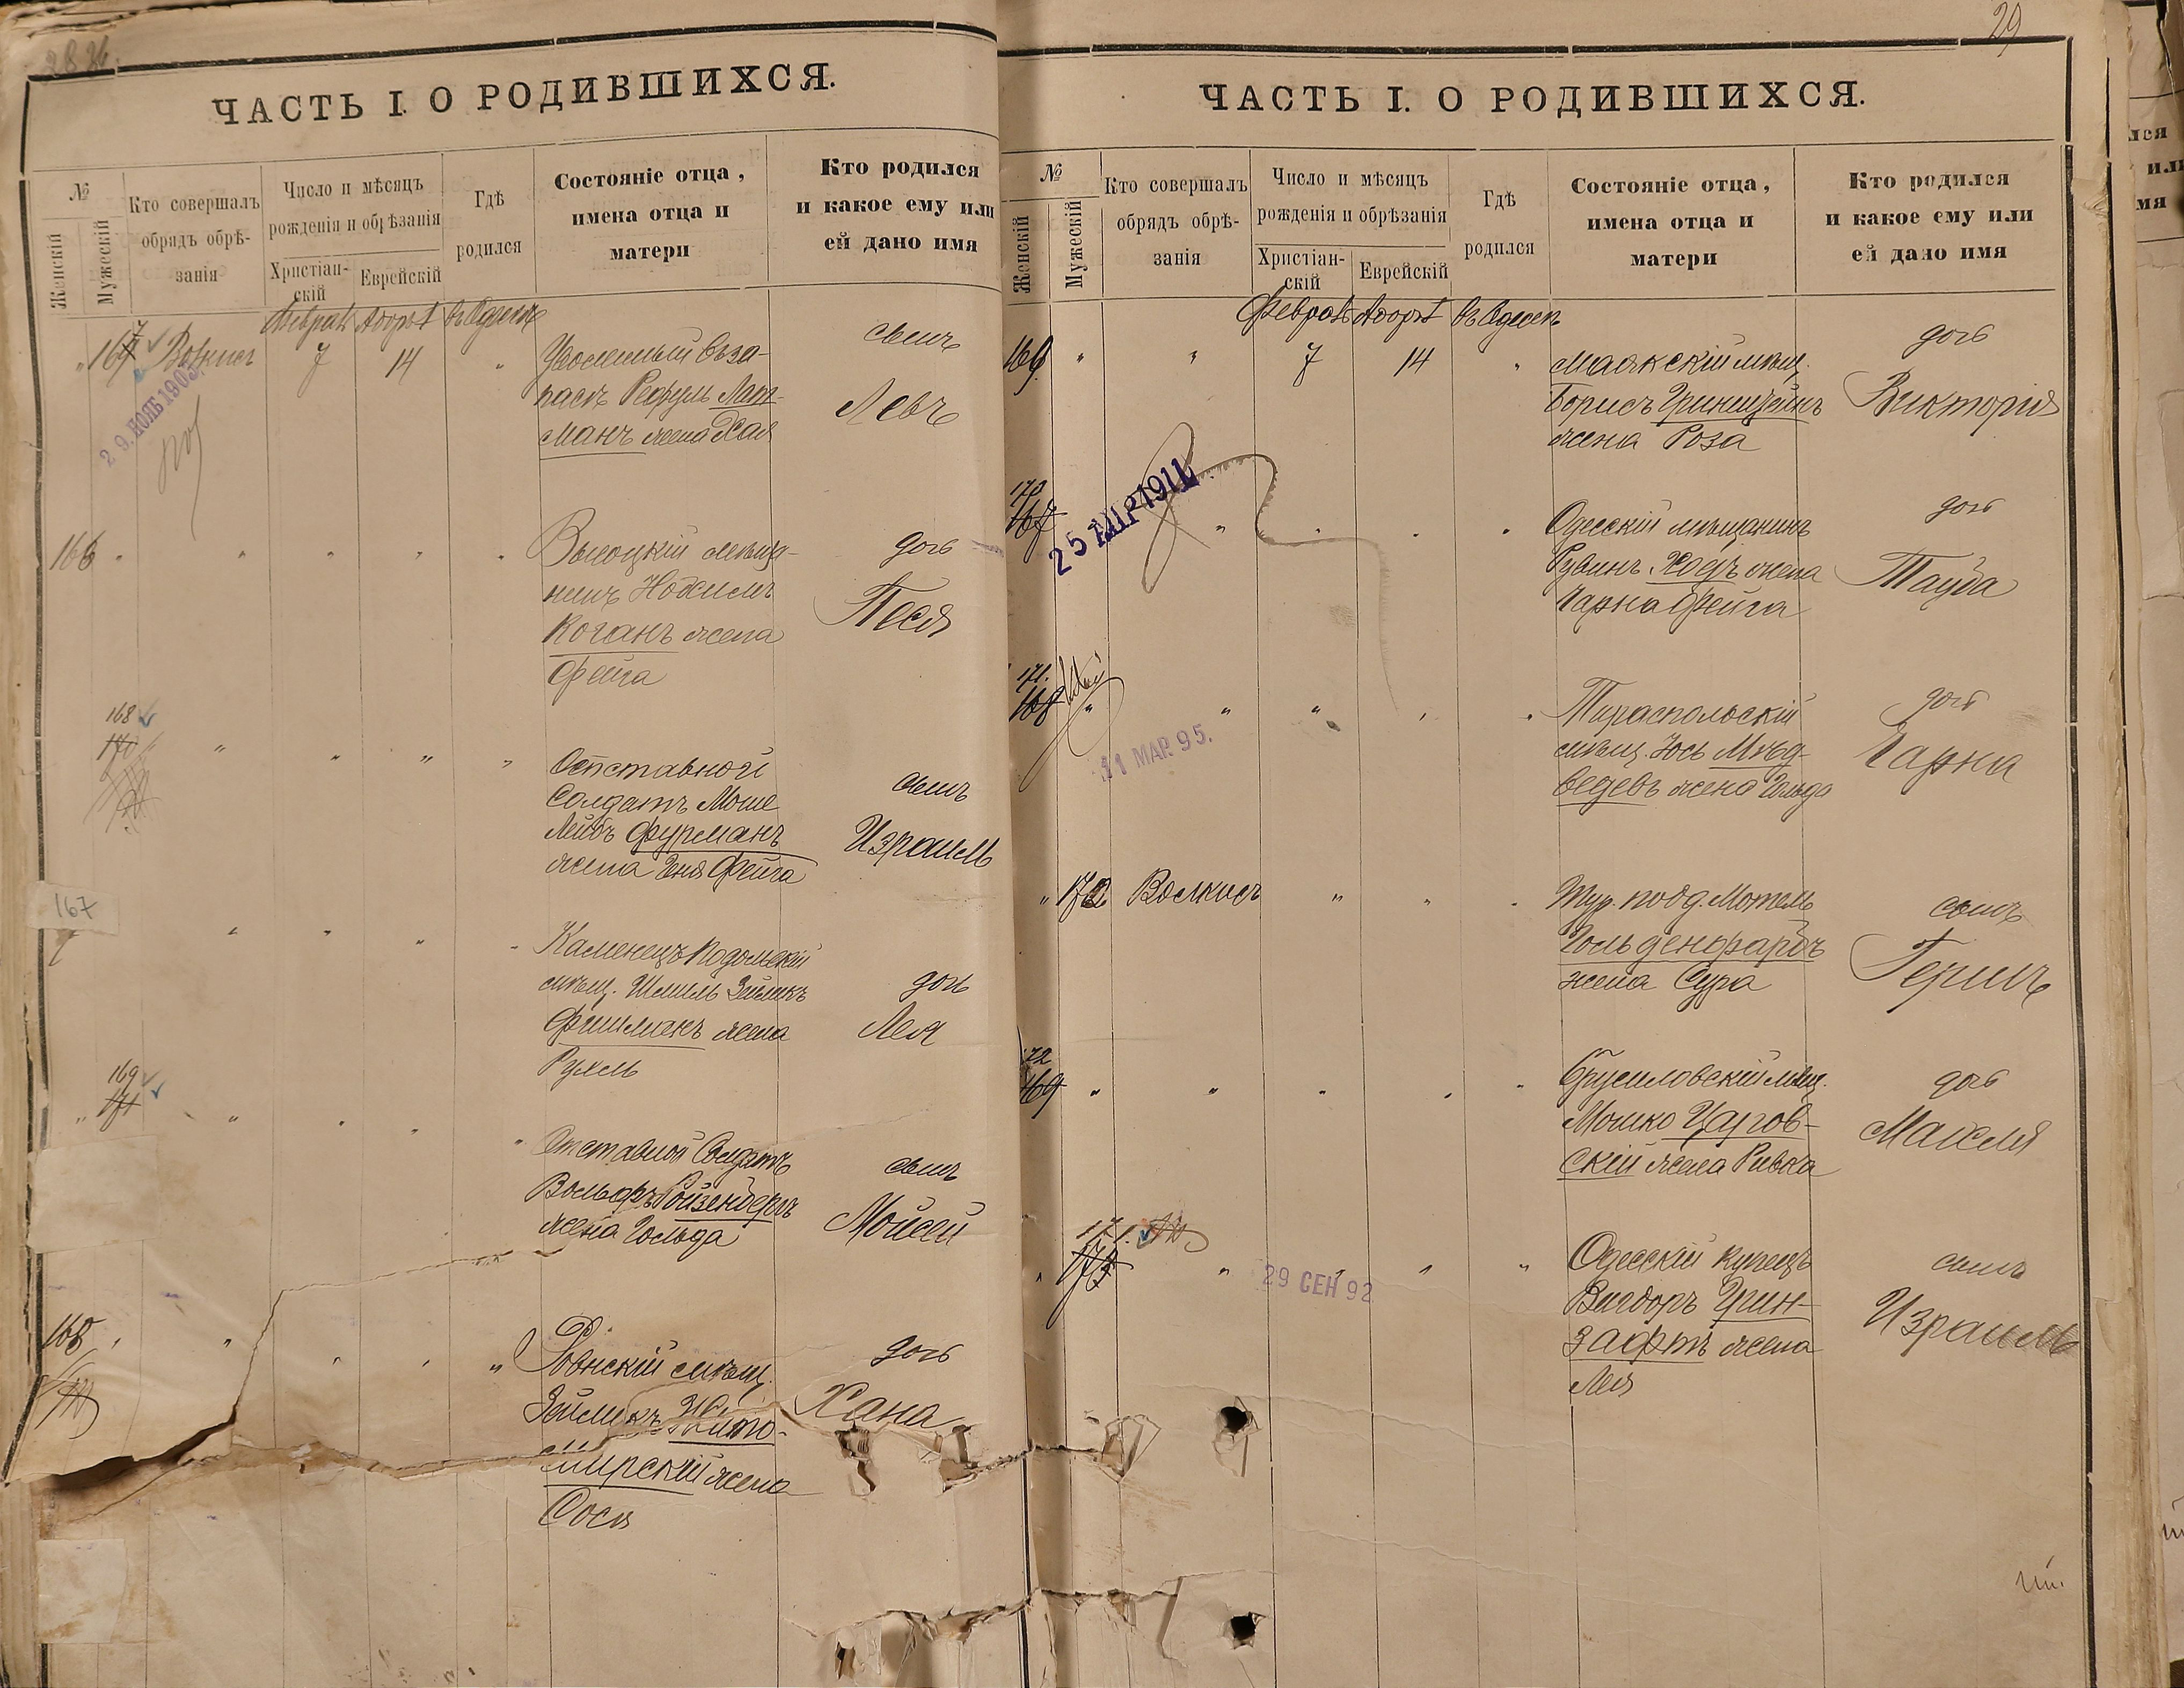 ЧАСТЬ I. О РОДИВШИХСЯ.
№
Женскій
Мужескій
Кто совершалъ
обрядъ обрѣ-
занія
Число и мѣсяцъ
рожденія и обрѣзанія
Христіан-
скій
Еврейскій
Гдѣ
родился
Состояніе отца,
имена отца и
матери
Кто родился
и какое ему или
ей дано имя
Адоръ I въ Одессѣ
7 14
29. НОЯБ 1903
Уволенный въ за-
пасъ
манъ жена Хая
сынъ
Левъ
166
мѣща-
нинъ
Коганъ жена
Фейга
дочь
Песя
168
170
Отставной
Солдатъ Моше
Лейбъ Фурманъ
жена Геня Фейга
сынъ
Израиль
167
Каменецъ Подольскій
мѣщ. Шмиль Зейликъ
Фишманъ жена
Рухль
дочь
Лея
169
171
Отставной Солдатъ
Вольфъ Ройзенбергъ
жена Гольда
сынъ
Мойсей
168
Ровнскій мѣщ.
Зейликъ Жито-
мирскій жена
Сося
дочь
Хана
29
ЧАСТЬ I. О РОДИВШИХСЯ.
№
Женскій
Мужескій
Кто совершалъ
обрядъ обрѣ-
занія
Число и мѣсяцъ
рожденія и обрѣзанія
Христіан-
скій
Еврейскій
Гдѣ
родился
Состояніе отца,
имена отца и
матери
Кто родился
и какое ему или
ей дано имя
Феврал Адоръ I въ Одессѣ
169 " " 7 14 "
Маякскій мѣщ.
Борисъ Гринштейнъ
жена Роза
дочь
Виктория
170
167
25 АПР 1911
Одесскій мѣщанинъ
Рувинъ Ходъ жена
Чарна Фейга
дочь
Тауба
171.
168
11 МАР. 95.
Тираспольскій
мѣщ. Юсь Мѣд-
ведевъ жена Гольда
дочь
Чарна
172 Волкисъ
Тур. подд. Мотель
Гольденфарбъ
жена Сура
сынъ
Гершъ
172
169
Брусиловскій мѣщ.
Мошко Цугов-
скій жена Ривка
дочь
Маселя
171.
173
29 СЕН 92
Одесскій купецъ
Вигдоръ Грин-
зафтъ жена
Лея
сынъ
Израиль